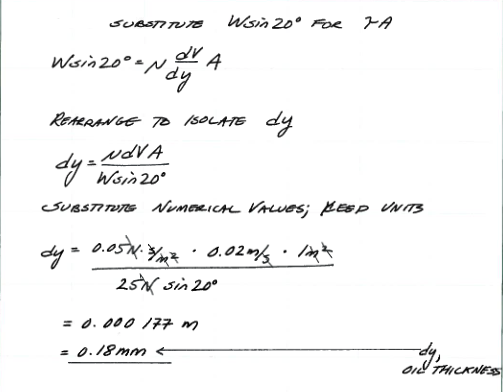 SUBSTITUTE Wsin20° FOR τA
Wsin20° = μ dV/dy A
REARRANGE TO ISOLATE dy
dy = μdVA / Wsin20°
SUBSTITUTE NUMERICAL VALUES; KEEP UNITS
dy = 0.05N·s/m² · 0.02m/s · 1m² / 25N sin20°
= 0.000 177 m
= 0.18mm ← dy,
OIL THICKNESS